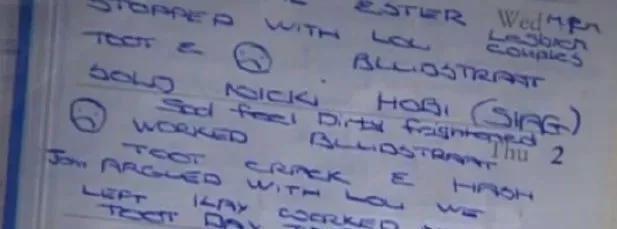 ESTER Wed MEN
STOPPED WITH LOU LESBIEN COUPLES
TOOT & BLLIDSTRAAT
SOLD NICKI HOBI (SIAG)
Sad feel Dirty frightened
WORKED BLLIDSTRAAT Thu 2
TOOT CRACK & HASH
ARGUED WITH LOU WE
LEFT WORKED
TOOT DAY